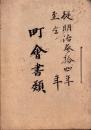 従明治参拾四年
至仝 年
町會書類